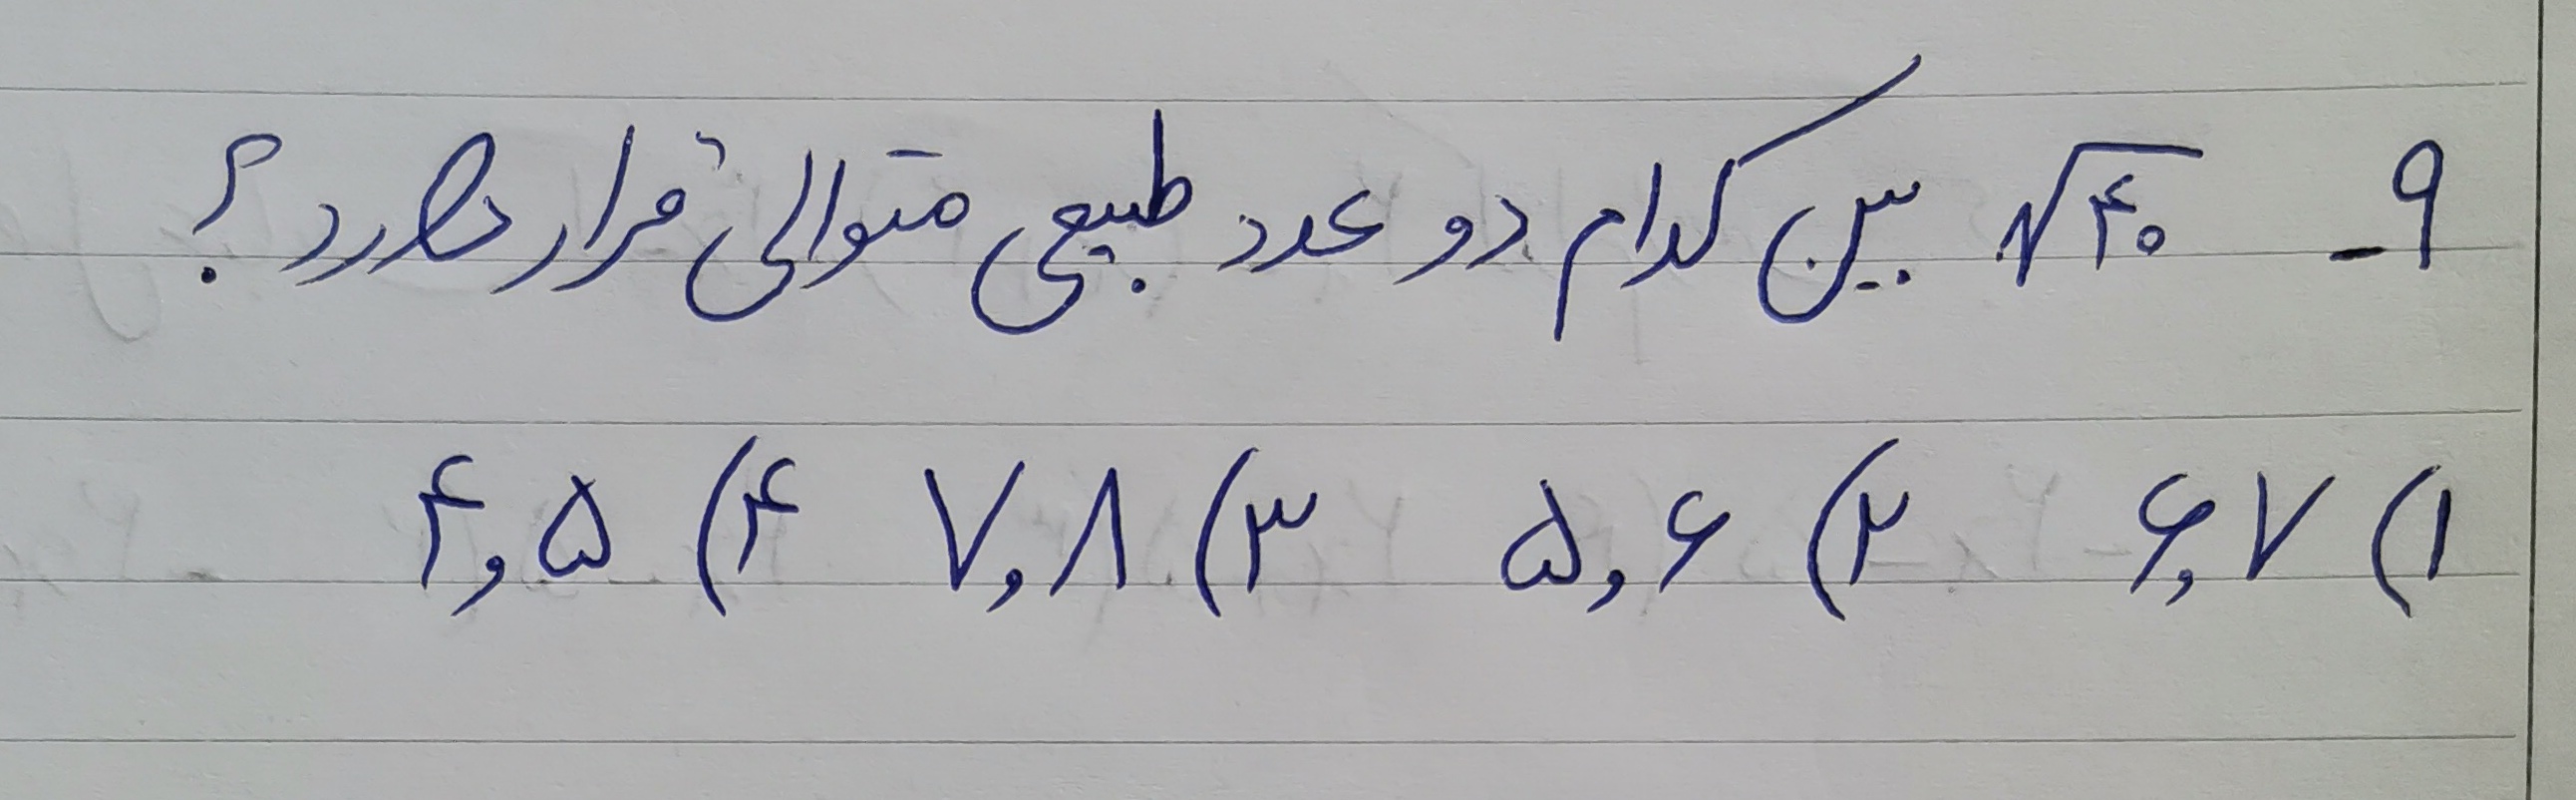 ۹- √۴۰ بین کدام دو عدد طبیعی متوالی قرار دارد؟
۱) ۶,۷ ۲) ۵,۶ ۳) ۷,۸ ۴) ۴,۵